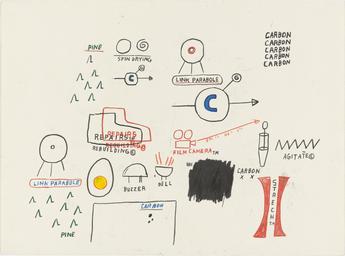 PINE
SPIN DRYING
CARBON
CARBON
CARBON
CARBON
CARBON
LINK PARABOLE
C
C
REPAIRS
REPAIRS
REBUILDING©
REBUILDING©
FILM CAMERA™
AGITATE©
LINK PARABOLE
BUZZER
BELL
CARBON
X X
STRECH™
CARBON
PINE